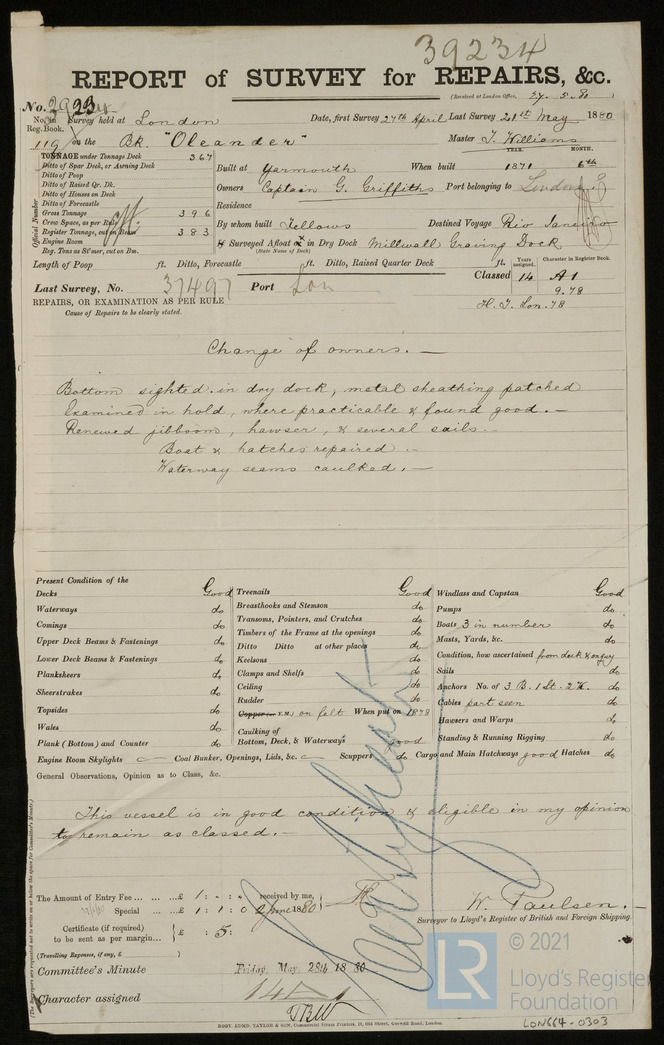 39234
REPORT of SURVEY for REPAIRS, &c.
(Received at London Office, 27. 5. 80 )
No. 23
No. in Reg. Book. Survey held at London Date, first Survey 27th April Last Survey 21st May 1880
119 on the Bk. "Oleander" Master J. Williams
TONNAGE under Tonnage Deck 367
Ditto of Spar Deck, or Awning Deck
Ditto of Poop
Ditto of Raised Qr. Dk.
Ditto of Houses on Deck
Ditto of Forecastle
Gross Tonnage 396
Crew Space, as per Rule
Register Tonnage, cut on Beam 383
Engine Room
Reg. Tons as St'mer, cut on Bm.
Official Number
YEAR. MONTH.
Built at Yarmouth When built 1871 6th
Owners Captain G. Griffiths Port belonging to London
Residence
By whom built Fellows Destined Voyage Rio Janeiro
If Surveyed Afloat or in Dry Dock Millwall Graving Dock
(State Name of Dock)
Length of Poop ft. Ditto, Forecastle ft. Ditto, Raised Quarter Deck ft.
Years assigned. Character in Register Book.
Classed 14 A1
9.78
H. T. Lon. 78
Last Survey, No. 37497 Port Lon
REPAIRS, OR EXAMINATION AS PER RULE
Cause of Repairs to be clearly stated.
Change of owners. —
Bottom sighted in dry dock, metal sheathing patched
Examined in hold, where practicable & found good. —
Renewed jibboom, hawser, & several sails —
Boat & hatches repaired —
Waterway seams caulked. —
Present Condition of the
Decks Good
Waterways do
Comings do
Upper Deck Beams & Fastenings do
Lower Deck Beams & Fastenings do
Planksheers do
Sheerstrakes do
Topsides do
Wales do
Plank (Bottom) and Counter do
Treenails Good
Breasthooks and Stemson do
Transoms, Pointers, and Crutches do
Timbers of the Frame at the openings do
Ditto Ditto at other places do
Keelsons do
Clamps and Shelfs do
Ceiling do
Rudder do
Copper or Y.M. on felt When put on 1878
Caulking of Bottom, Deck, & Waterways good
Windlass and Capstan Good
Pumps do
Boats 3 in number do
Masts, Yards, &c. do
Condition, how ascertained from deck &
Sails do
Anchors No. of 3 B. 1 St. 2 K. do
Cables part seen do
Hawsers and Warps do
Standing & Running Rigging do
Engine Room Skylights — Coal Bunker, Openings, Lids, &c. — Scuppers do Cargo and Main Hatchways good Hatches do
General Observations, Opinion as to Class, &c.
This vessel is in good condition & eligible in my opinion
to remain as classed. —
The Amount of Entry Fee ... ...£ 1 : - : - received by me,
Special ... ...£ 1 : 1 : 0 2 June 1880
Certificate (if required) to be sent as per margin... £ : 5 :
(Travelling Expenses, if any, £ )
W. Paulsen. —
Surveyor to Lloyd's Register of British and Foreign Shipping.
Committee's Minute Friday, May, 28th 1880
Character assigned 14 A
(The Surveyors are requested not to write on or below the space for Committee's Minute.)
ROBT. EDMD. TAYLOR & SON, Commercial Steam Printers, 19, Old Street, Goswell Road, London.
LR
© 2021
Lloyd's Register
Foundation
LON664-0303